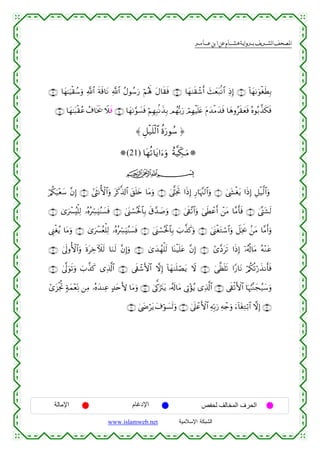 المصحف الشريف برواية هشام عن ابن عامر
بِطَغْوَىٰهَا ۝ إِذِ ٱنۢبَعَثَ أَشْقَىٰهَا ۝ فَقَالَ لَهُمْ رَسُولُ ٱللَّهِ نَاقَةَ ٱللَّهِ وَسُقْيَٰهَا ۝
فَكَذَّبُوهُ فَعَقَرُوهَا فَدَمْدَمَ عَلَيْهِمْ رَبُّهُم بِذَنۢبِهِمْ فَسَوَّىٰهَا ۝ فَلَا يَخَافُ عُقْبَٰهَا ۝
﴿ سُورَةُ ٱللَّيْلِ ﴾
مَكِّيَّةٌ وَءَايَاتُهَا (21)
بِسْمِ ٱللَّهِ ٱلرَّحْمَٰنِ ٱلرَّحِيمِ
وَٱلَّيْلِ إِذَا يَغْشَىٰ ۝ وَٱلنَّهَارِ إِذَا تَجَلَّىٰ ۝ وَمَا خَلَقَ ٱلذَّكَرَ وَٱلْأُنثَىٰ ۝ إِنَّ سَعْيَكُمْ
لَشَتَّىٰ ۝ فَأَمَّا مَنْ أَعْطَىٰ وَٱتَّقَىٰ ۝ وَصَدَّقَ بِٱلْحُسْنَىٰ ۝ فَسَنُيَسِّرُهُۥ لِلْيُسْرَىٰ ۝
وَأَمَّا مَنۢ بَخِلَ وَٱسْتَغْنَىٰ ۝ وَكَذَّبَ بِٱلْحُسْنَىٰ ۝ فَسَنُيَسِّرُهُۥ لِلْعُسْرَىٰ ۝ وَمَا يُغْنِى
عَنْهُ مَالُهُۥ إِذَا تَرَدَّىٰ ۝ إِنَّ عَلَيْنَا لَلْهُدَىٰ ۝ وَإِنَّ لَنَا لَلْأَخِرَةَ وَٱلْأُولَىٰ ۝
فَأَنذَرْتُكُمْ نَارًا تَلَظَّىٰ ۝ لَا يَصْلَىٰهَا إِلَّا ٱلْأَشْقَى ۝ ٱلَّذِى كَذَّبَ وَتَوَلَّىٰ ۝
وَسَيُجَنَّبُهَا ٱلْأَتْقَى ۝ ٱلَّذِى يُؤْتِى مَالَهُۥ يَتَزَكَّىٰ ۝ وَمَا لِأَحَدٍ عِندَهُۥ مِن نِّعْمَةٍ تُجْزَىٰ
۝ إِلَّا ٱبْتِغَآءَ وَجْهِ رَبِّهِ ٱلْأَعْلَىٰ ۝ وَلَسَوْفَ يَرْضَىٰ ۝
الحرف المخالف لحفص الإدغام الإمالة
الشبكة الإسلامية www.islamweb.net